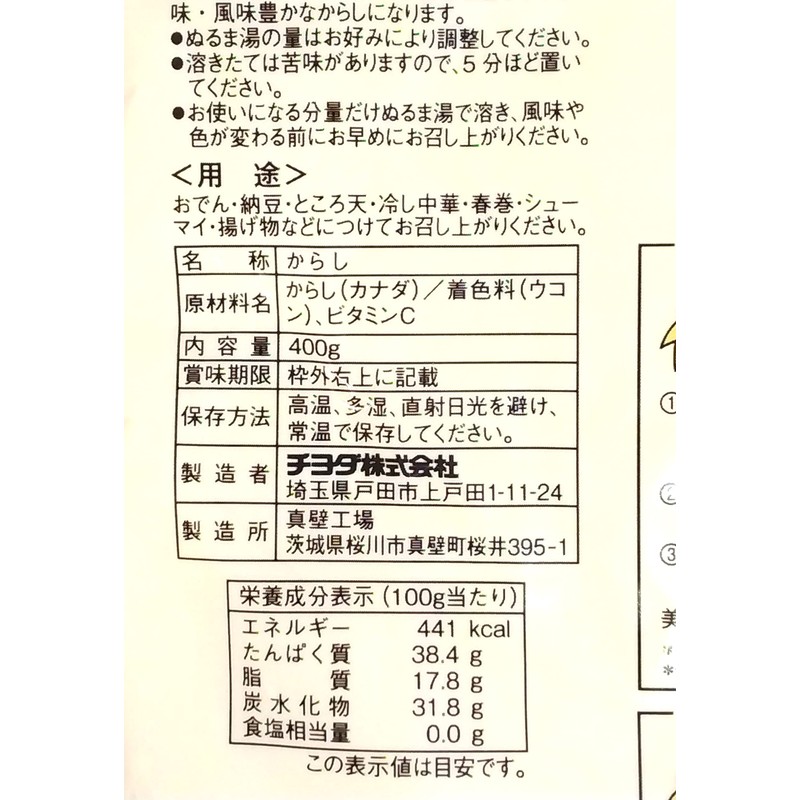 味・風味豊かなからしになります。
●ぬるま湯の量はお好みにより調整してください。
●溶きたては苦味がありますので、5分ほど置い
てください。
●お使いになる分量だけぬるま湯で溶き、風味や
色が変わる前にお早めにお召し上がりください。
＜用　途＞
おでん・納豆・ところ天・冷し中華・春巻・シュー
マイ・揚げ物などにつけてお召し上がりください。
名　称 からし
原材料名 からし（カナダ）／着色料（ウコ
ン）、ビタミンC
内容量 400g
賞味期限 枠外右上に記載
保存方法 高温、多湿、直射日光を避け、
常温で保存してください。
製造者 チヨダ株式会社
埼玉県戸田市上戸田1-11-24
製造所 真壁工場
茨城県桜川市真壁町桜井395-1
栄養成分表示（100g当たり）
エネルギー 441 kcal
たんぱく質 38.4 g
脂　質 17.8 g
炭水化物 31.8 g
食塩相当量 0.0 g
この表示値は目安です。
①
②
③
美